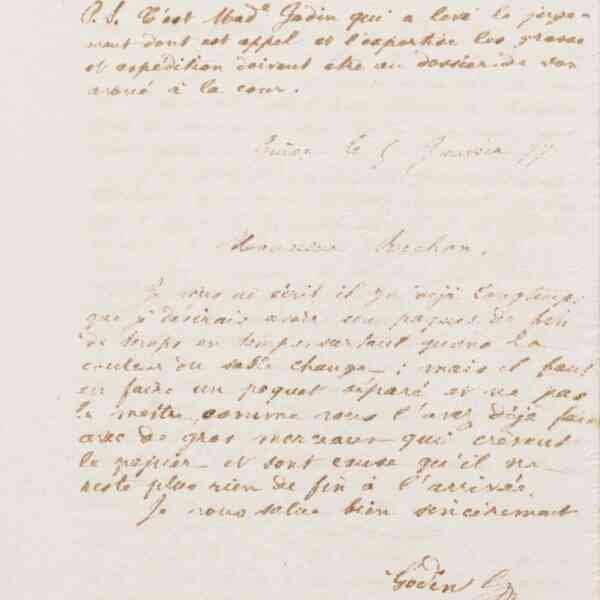 P.S. C'est Mad.e Godin qui a levé le juge-
ment dont est appel et l'expertise les grosse
et expédition doivent etre au dossier de son
avoué à la cour.
Guise le 5 Janvier 77
Monsieur Béchon,
Je vous ai écrit il y a déjà longtemps
que je désirais avoir un paquet de fin
de temps en temps surtout quand la
couleur du sable change ; mais il faut
en faire un paquet séparé et ne pas
le mettre comme vous l'avez déjà fait
avec de gros morceaux qui crèvent
le papier et sont cause qu'il ne
reste plus rien de fin à l'arrivée.
Je vous salue bien sincèrement
Godin